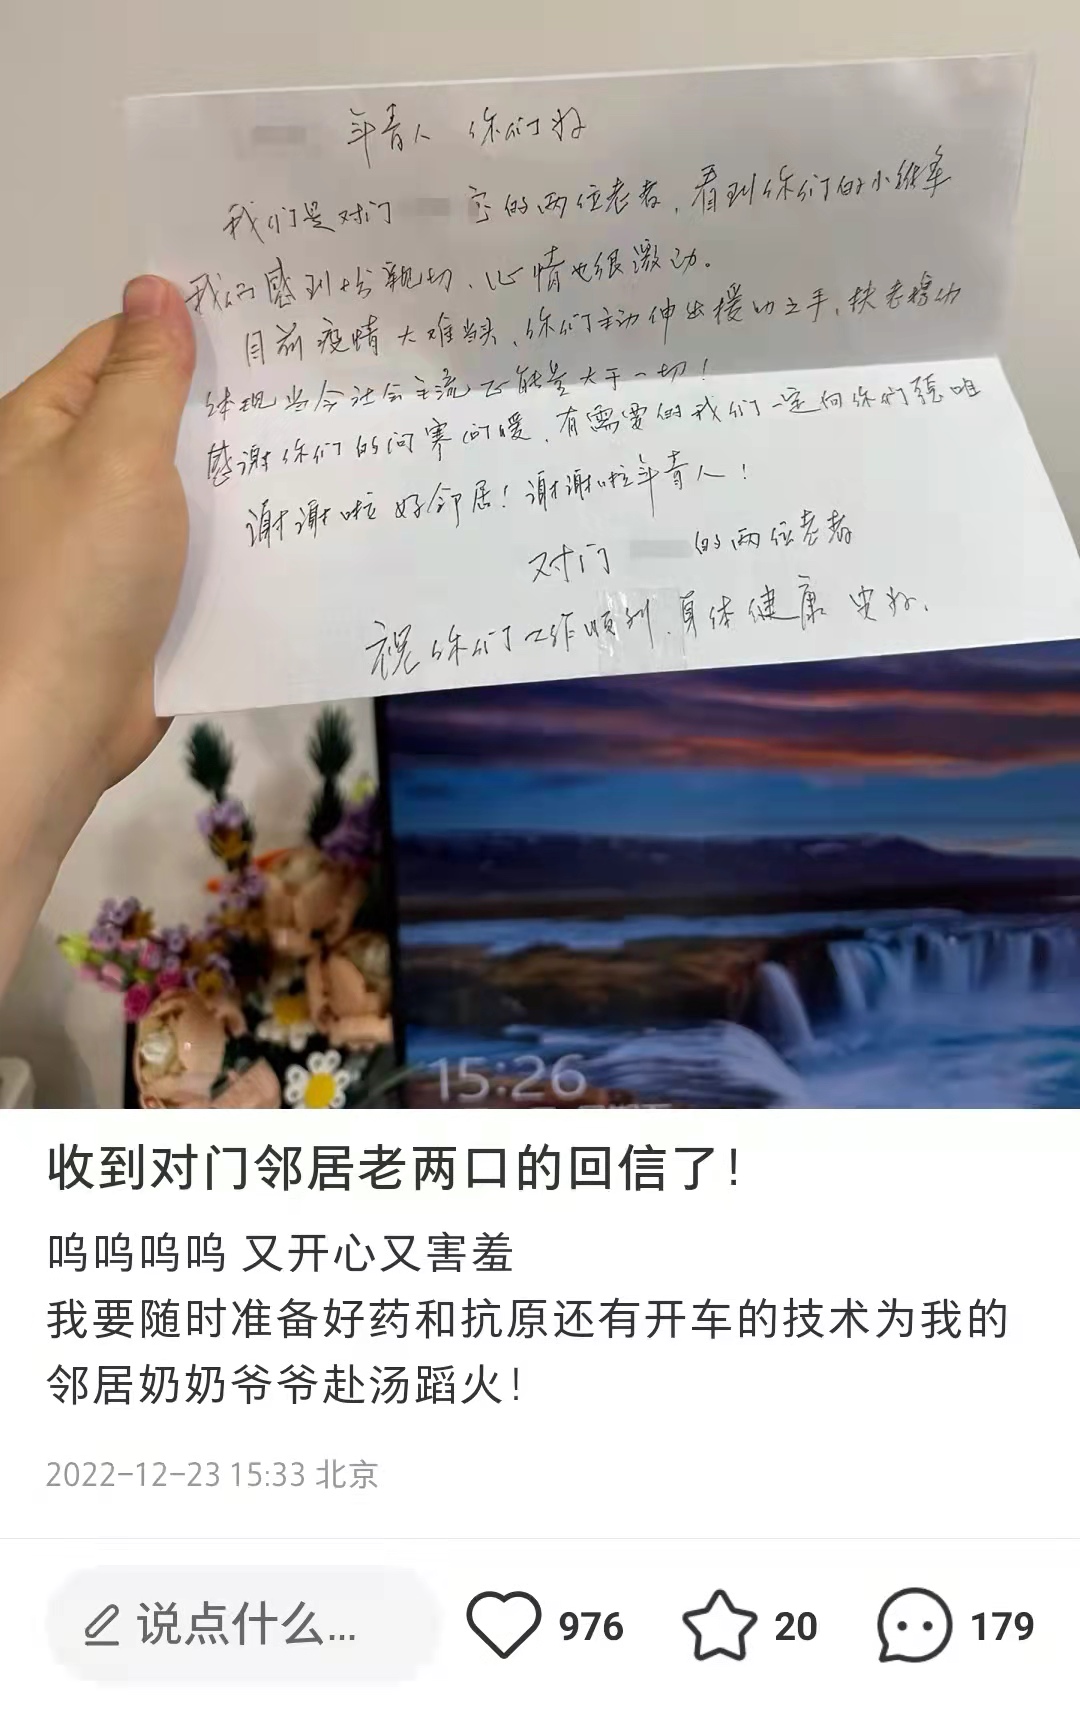 年青人 你们好
我们是对门 室的两位老者，看到你们的小纸条
我们感到十分亲切、心情也很激动。
目前疫情大难当头、你们主动伸出援助之手，扶老
体现当今社会主流正能量大于一切！
感谢你们的问寒问暖，有需要的我们一定向你们
谢谢啦 好邻居！谢谢啦年青人！
对门 的两位老者
祝你们工作顺利、身体健康
15:26
收到对门邻居老两口的回信了！
呜呜呜呜 又开心又害羞
我要随时准备好药和抗原还有开车的技术为我的
邻居奶奶爷爷赴汤蹈火！
2022-12-23 15:33 北京
说点什么...
976
20
179